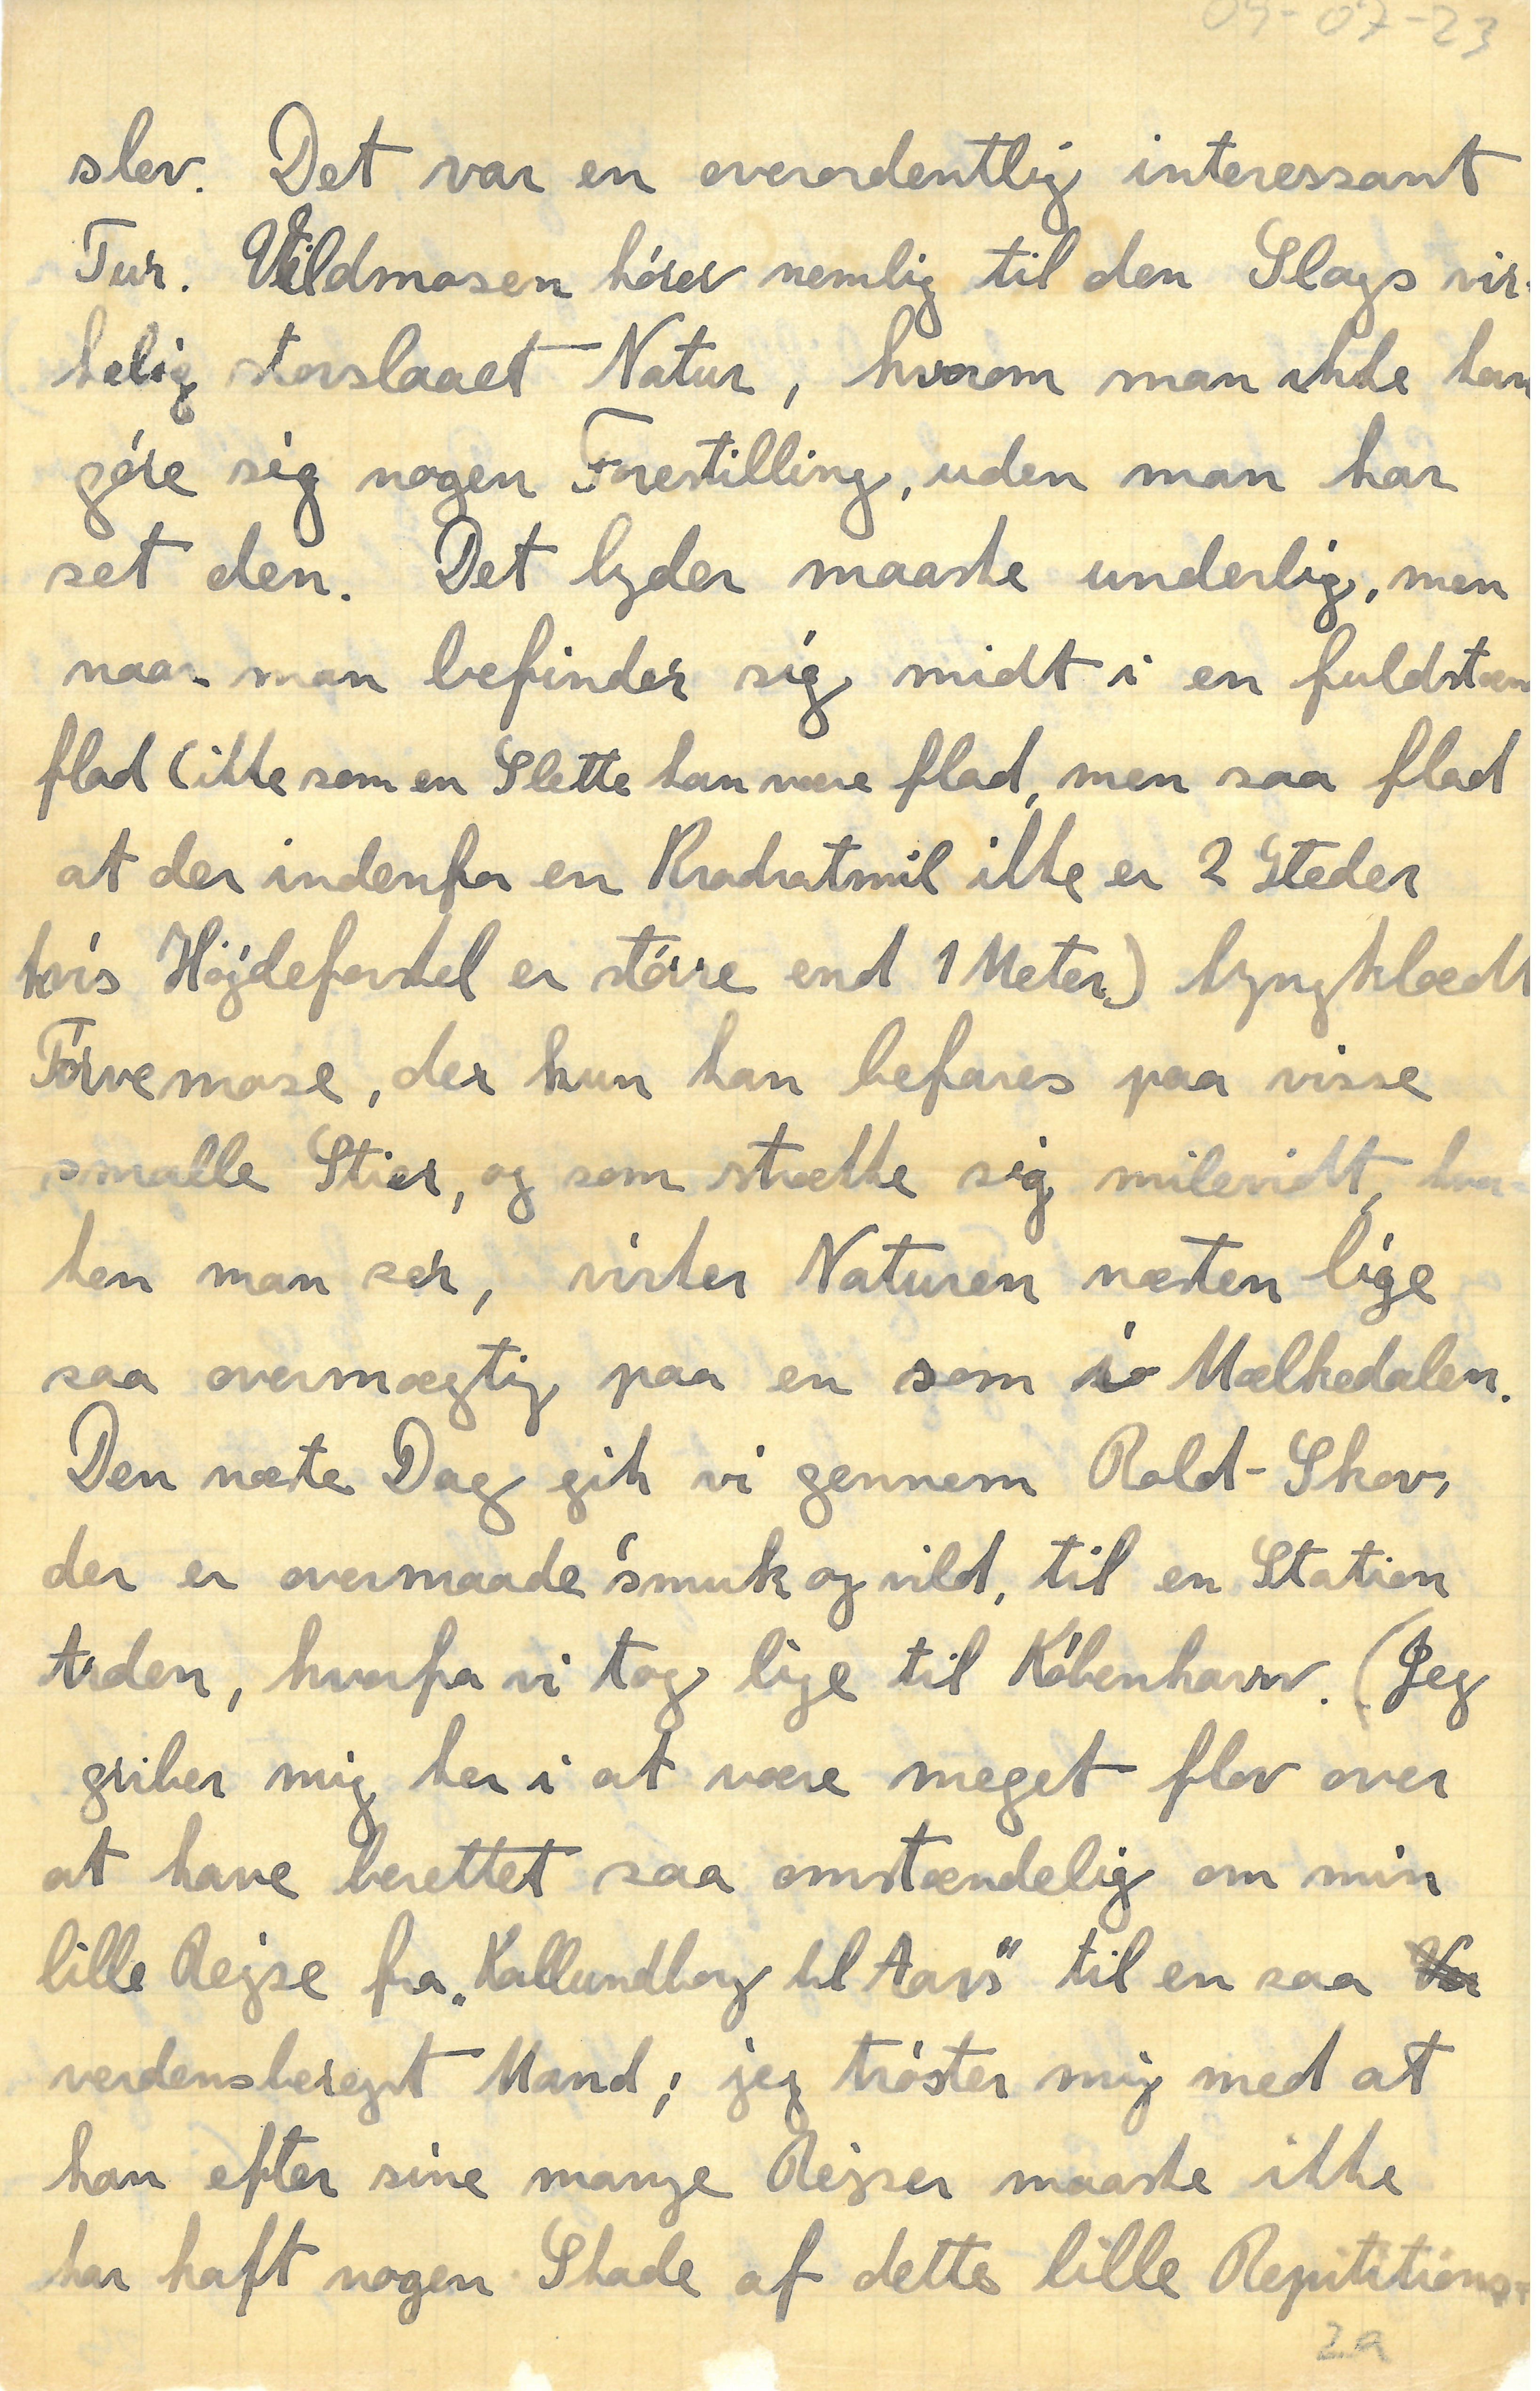 09-07-23
slev. Det var en overordentlig interessant
Tur. Vildmosen hører nemlig til den Slags vir-
kelig storslaaet Natur, hvorom man ikke kan
gøre sig nogen Forestilling, uden man har
set den. Det lyder maaske underlig, men
naar man befinder sig midt i en fuldstæn
flad (ikke som en Slette kan være flad, men saa flad
at der indenfor en Kvadratmil ikke er 2 Steder
hvis Højdeforskel er större end 1 Meter) lyngklædt
Tørvemose, der kun kan befares paa visse
smalle Stier, og som strække sig milevidt, hvor-
hen man ser, virker Naturen næsten lige
saa overmægtig paa en som i Mælkedalen.
Den næste Dag gik vi gennem Rold-Skov,
der er overmaade smuk og vild, til en Station
Arden, hvorfra vi tog lige til København. (Jeg
griber mig her i at være meget flov over
at have berettet saa omstændelig om min
lille Rejse fra „Kallundborg til Aars" til en saa
verdensberejst Mand; jeg trøster mig med at
han efter sine mange Rejser maaske ikke
har haft nogen Skade af dette lille Repititions-
2a